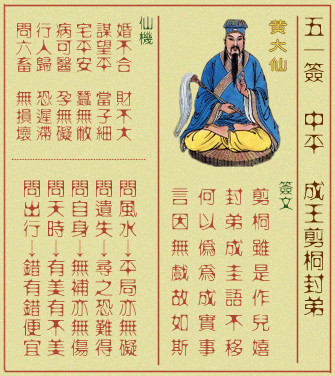 五一簽 中平 成王剪桐封弟
黃大仙
簽文
剪桐雖是作兒嬉
封弟成圭語不移
何以僞爲成實事
言因無戲故如斯
仙機
婚不合 財不大
謀望平 當子細
宅平安 蠶無
病可醫 孕無礙
行人歸 恐遲滯
問六畜 無損壞
問風水→平局亦無礙
問遺失→尋之恐難得
問自身→無補亦無傷
問天時→有美有不美
問出行→錯有錯便宜